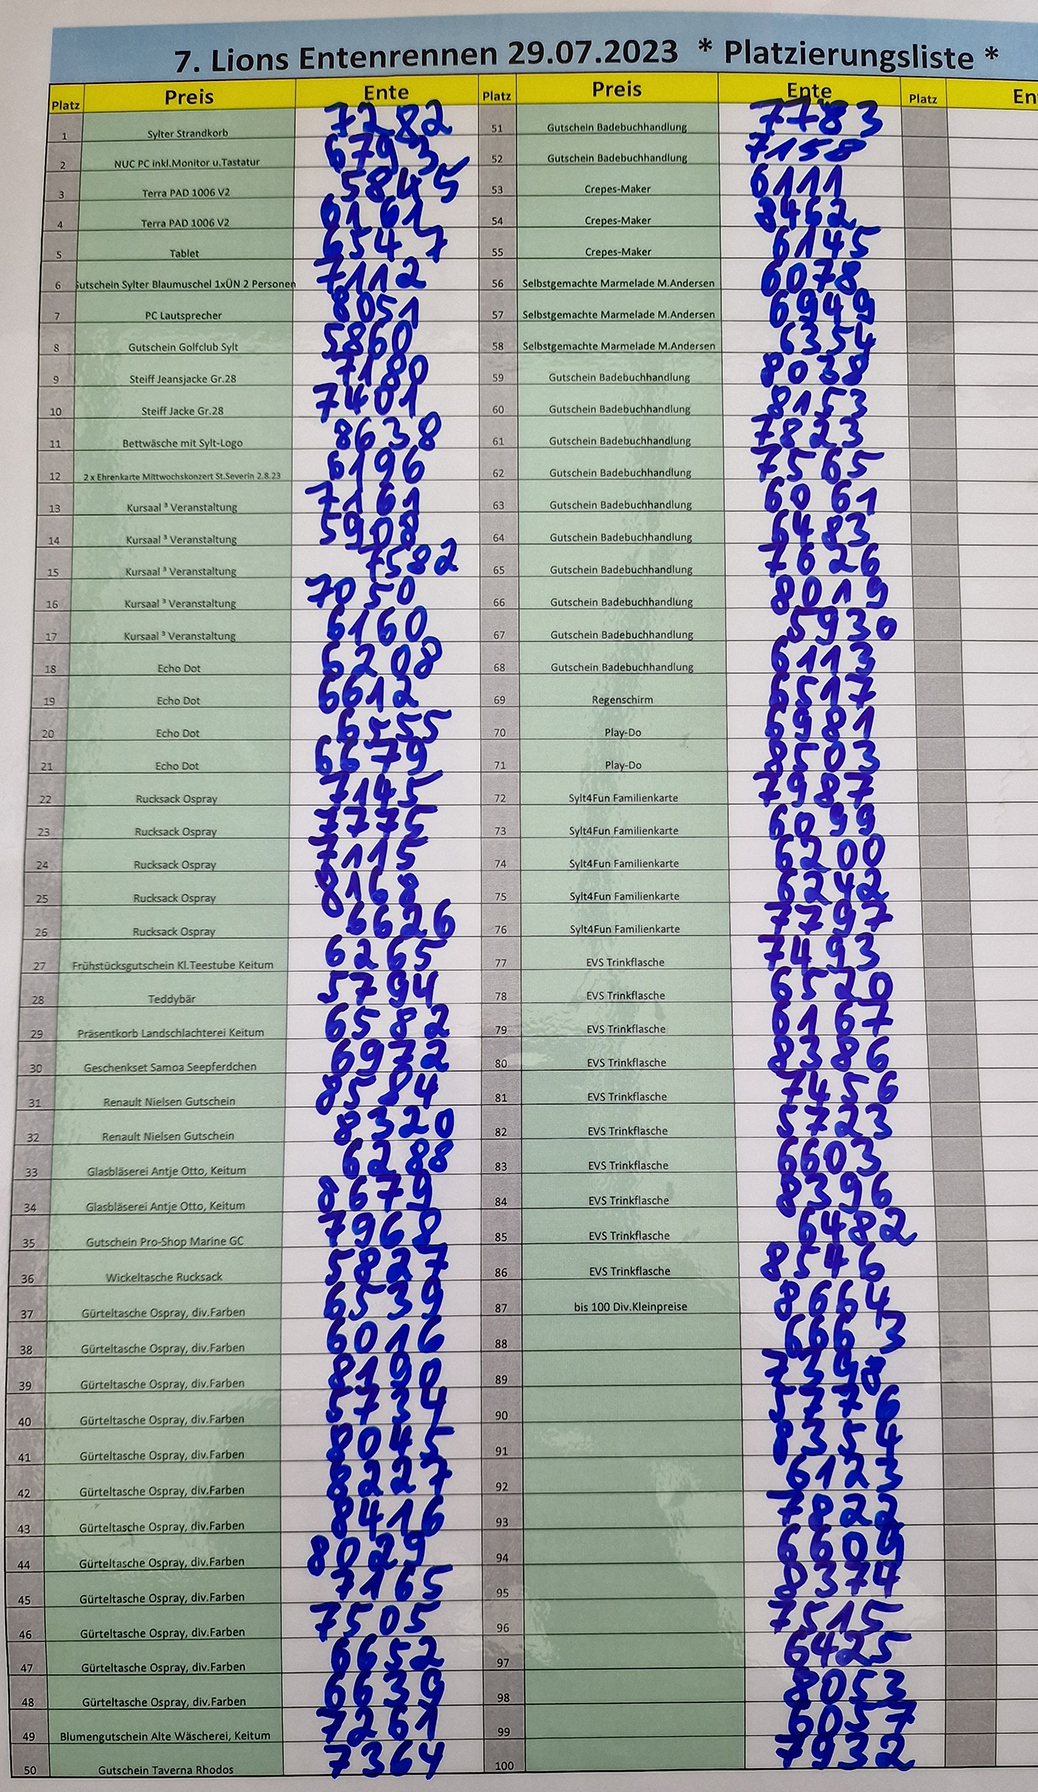 7. Lions Entenrennen 29.07.2023 * Platzierungsliste *
Platz Preis Ente Platz Preis Ente Platz
1 Sylter Strandkorb 7282 51 Gutschein Badebuchhandlung 7783
2 NUC PC inkl.Monitor u.Tastatur 6793 52 Gutschein Badebuchhandlung 7158
3 Terra PAD 1006 V2 5845 53 Crepes-Maker 6111
4 Terra PAD 1006 V2 6161 54 Crepes-Maker 8462
5 Tablet 6547 55 Crepes-Maker 6145
6 utschein Sylter Blaumuschel 1xÜN 2 Personen 7112 56 Selbstgemachte Marmelade M.Andersen 6078
7 PC Lautsprecher 8051 57 Selbstgemachte Marmelade M.Andersen 6949
8 Gutschein Golfclub Sylt 5860 58 Selbstgemachte Marmelade M.Andersen 6354
9 Steiff Jeansjacke Gr.28 7180 59 Gutschein Badebuchhandlung 8038
10 Steiff Jacke Gr.28 7401 60 Gutschein Badebuchhandlung 8153
11 Bettwäsche mit Sylt-Logo 8638 61 Gutschein Badebuchhandlung 7823
12 2 x Ehrenkarte Mittwochskonzert St.Severin 2.8.23 6196 62 Gutschein Badebuchhandlung 7565
13 Kursaal ³ Veranstaltung 7161 63 Gutschein Badebuchhandlung 6061
14 Kursaal ³ Veranstaltung 5908 64 Gutschein Badebuchhandlung 6483
15 Kursaal ³ Veranstaltung 7582 65 Gutschein Badebuchhandlung 7626
16 Kursaal ³ Veranstaltung 7050 66 Gutschein Badebuchhandlung 8019
17 Kursaal ³ Veranstaltung 6160 67 Gutschein Badebuchhandlung 5930
18 Echo Dot 6208 68 Gutschein Badebuchhandlung 6113
19 Echo Dot 6612 69 Regenschirm 6517
20 Echo Dot 6555 70 Play-Do 6981
21 Echo Dot 6679 71 Play-Do 8503
22 Rucksack Ospray 7145 72 Sylt4Fun Familienkarte 7987
23 Rucksack Ospray 7775 73 Sylt4Fun Familienkarte 6099
24 Rucksack Ospray 7115 74 Sylt4Fun Familienkarte 6200
25 Rucksack Ospray 8168 75 Sylt4Fun Familienkarte 6242
26 Rucksack Ospray 6626 76 Sylt4Fun Familienkarte 7797
27 Frühstücksgutschein Kl.Teestube Keitum 6265 77 EVS Trinkflasche 7493
28 Teddybär 5794 78 EVS Trinkflasche 6520
29 Präsentkorb Landschlachterei Keitum 6582 79 EVS Trinkflasche 6167
30 Geschenkset Samoa Seepferdchen 6972 80 EVS Trinkflasche 8386
31 Renault Nielsen Gutschein 8584 81 EVS Trinkflasche 7456
32 Renault Nielsen Gutschein 8320 82 EVS Trinkflasche 5723
33 Glasbläserei Antje Otto, Keitum 6288 83 EVS Trinkflasche 6603
34 Glasbläserei Antje Otto, Keitum 8679 84 EVS Trinkflasche 8396
35 Gutschein Pro-Shop Marine GC 7968 85 EVS Trinkflasche 6482
36 Wickeltasche Rucksack 5827 86 EVS Trinkflasche 8546
37 Gürteltasche Ospray, div.Farben 6539 87 bis 100 Div.Kleinpreise 8664
38 Gürteltasche Ospray, div.Farben 6016 88 6663
39 Gürteltasche Ospray, div.Farben 8190 89 7398
40 Gürteltasche Ospray, div.Farben 5734 90 5776
41 Gürteltasche Ospray, div.Farben 8045 91 8354
42 Gürteltasche Ospray, div.Farben 8227 92 6123
43 Gürteltasche Ospray, div.Farben 8416 93 7822
44 Gürteltasche Ospray, div.Farben 8029 94 6609
45 Gürteltasche Ospray, div.Farben 7165 95 8374
46 Gürteltasche Ospray, div.Farben 7505 96 7515
47 Gürteltasche Ospray, div.Farben 6652 97 6425
48 Gürteltasche Ospray, div.Farben 6639 98 8053
49 Blumengutschein Alte Wäscherei, Keitum 7261 99 6057
50 Gutschein Taverna Rhodos 7364 100 7932